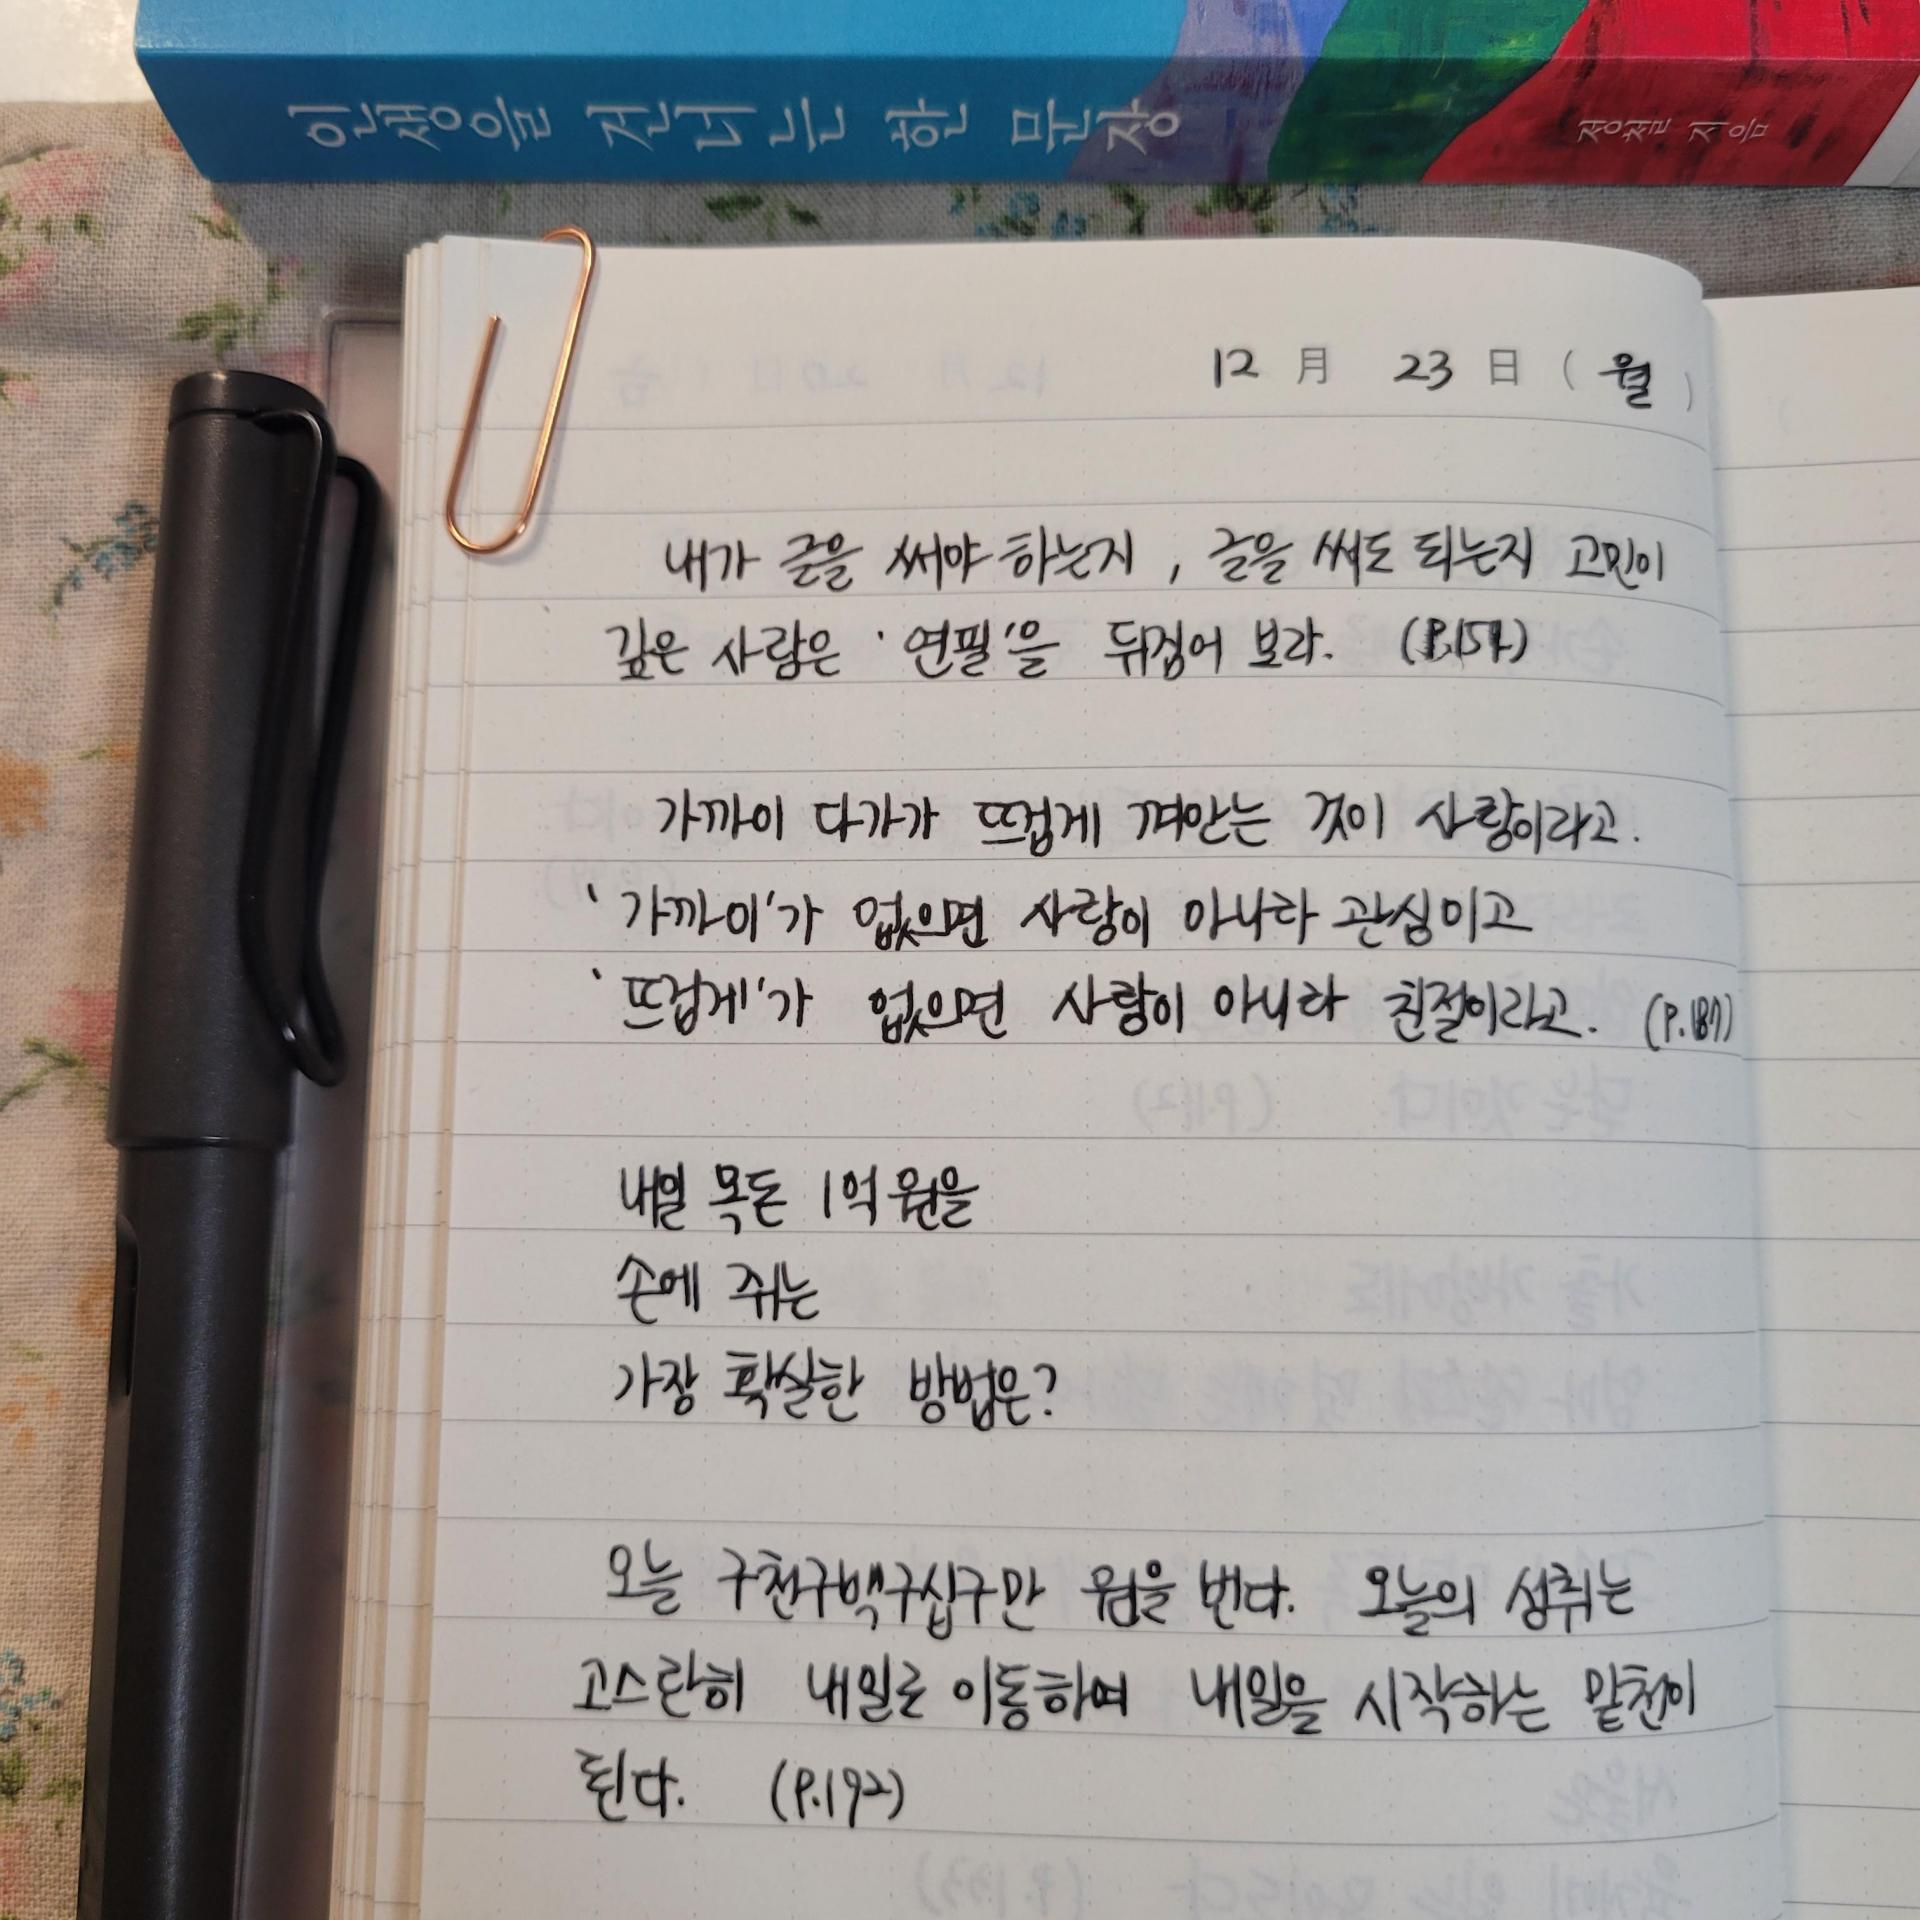 인생을 건너는 한 문장
정철 지음
12 月 23 日 ( 월 )
내가 글을 써야 하는지, 글을 써도 되는지 고민이
깊은 사람은 '연필'을 뒤집어 보라. (P.157)
가까이 다가가 뜨겁게 껴안는 것이 사랑이라고.
'가까이'가 없으면 사랑이 아니라 관심이고
'뜨겁게'가 없으면 사랑이 아니라 친절이라고. (P.187)
내일 목돈 1억 원을
손에 쥐는
가장 확실한 방법은?
오늘 구천구백구십구만 원을 번다. 오늘의 성취는
고스란히 내일로 이동하여 내일을 시작하는 밑천이
된다. (P.192)